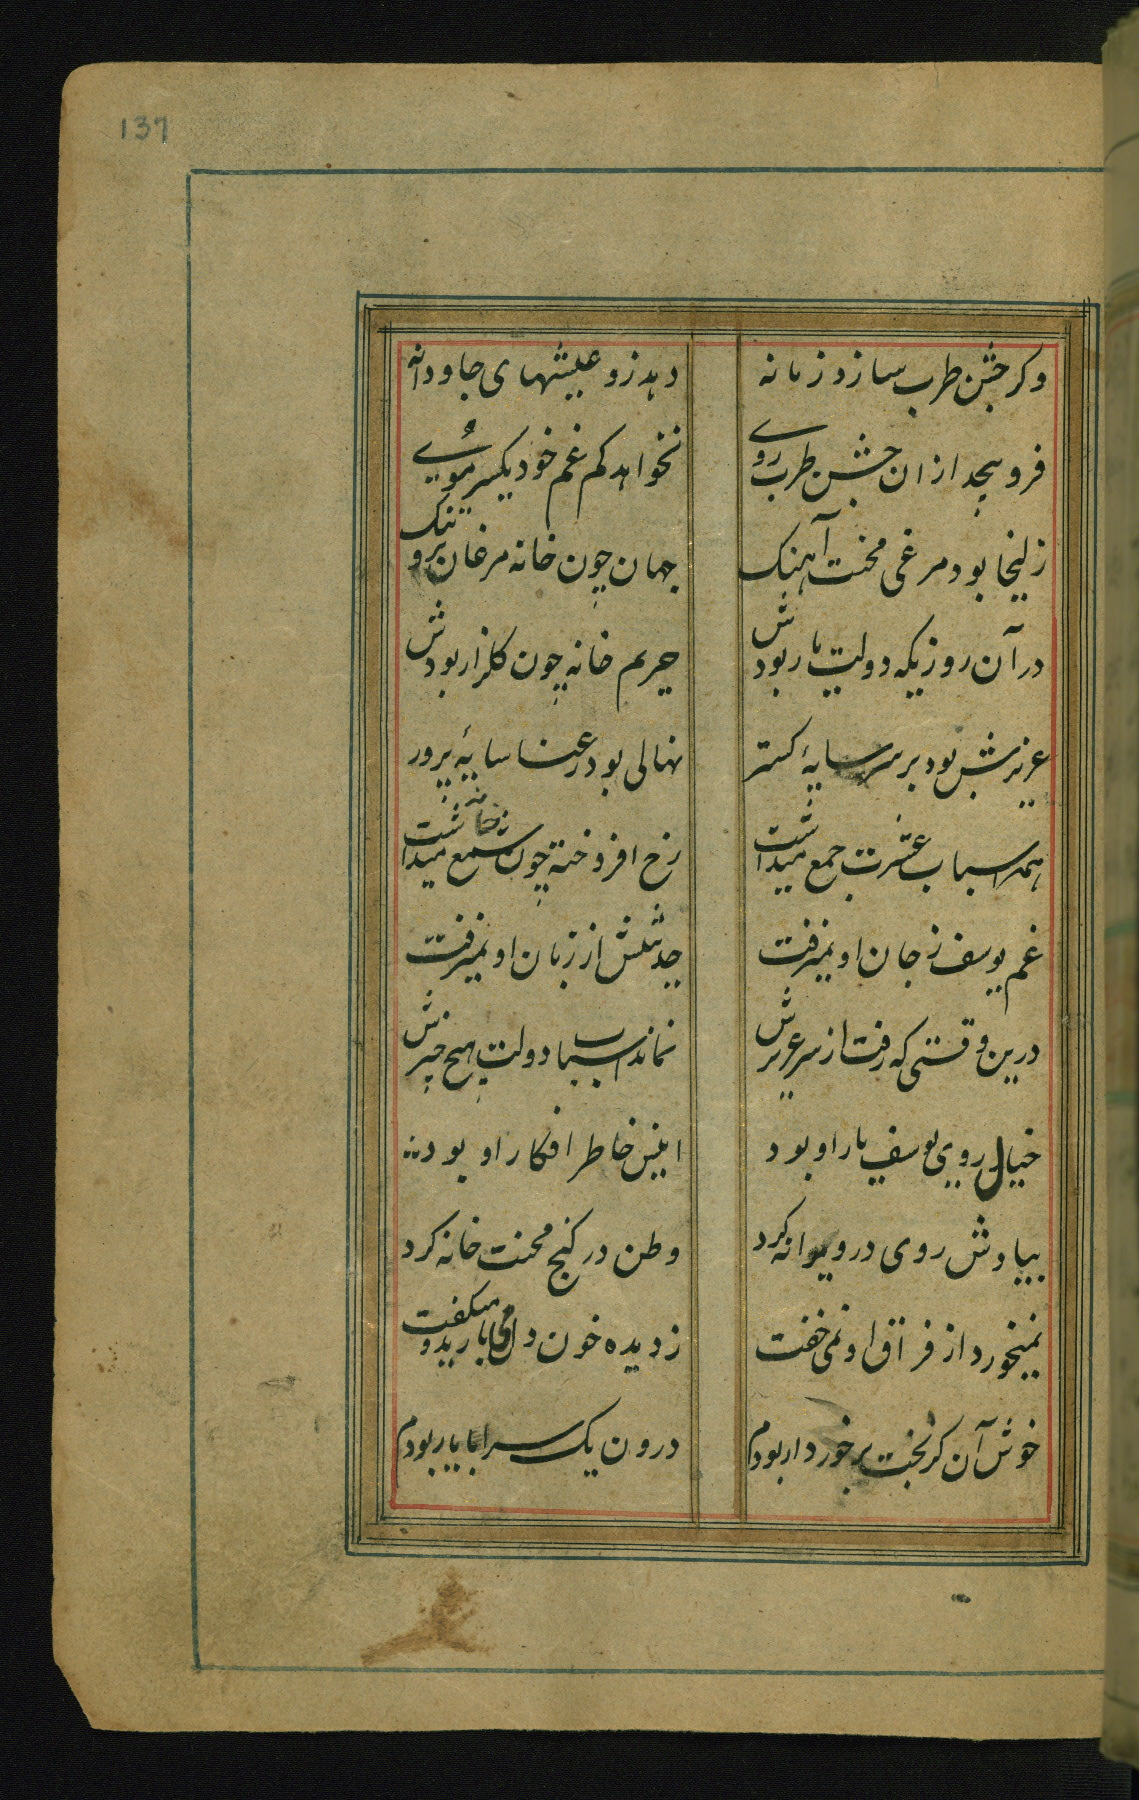 137
وکر جشن طرب سازد زمانه دهد زو عیشهای جاودانه
فرو پیچد ازان جشن طرب روی نخواهد کم غم خود یکسر موی
زلیخا بود مرغی محنت آهنک جهان چون خانه مرغان برو تنک
در آن روزیکه دولت یار بودش حریم خانه چون کلزار بودش
عزیزش بود بر سر سایهٔ کستر نهالی بود رعنا سایهٔ پرور
همه اسباب عشرت جمع میداشت رخ افروخته چون شمع میداشت
غم یوسف ز جان او نمیرفت حدیثش از زبان او نمیرفت
درین وقتی که رفت از سر عزیزش نماند اسباب دولت هیچ چیزش
خیال روی یوسف یار او بود انیس خاطر افکار او بود
بیادش روی در ویرانه کرد وطن در کنج محنت خانه کرد
نمیخورد از فراق او نمی خفت ز دیده خون دل می بارید و میکفت
خوش آن کز بخت برخوردار بودم درون یک سرا با یار بودم